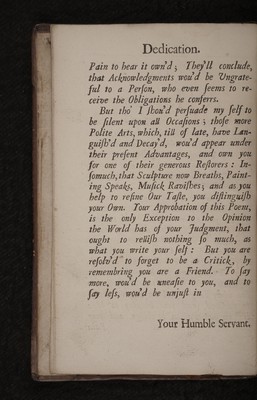 Dedication.
Pain to hear it own'd; They'll conclude,
that Acknowledgments wou'd be Ungrate-
ful to a Person, who even seems to re-
ceive the Obligations he conferrs.
But tho' I shou'd persuade my self to
be silent upon all Occasions; those more
Polite Arts, which, till of late, have Lan-
guish'd and Decay'd, wou'd appear under
their present Advantages, and own you
for one of their generous Restorers: In-
somuch, that Sculpture now Breaths, Paint-
ing Speaks, Musick Ravishes; and as you
help to refine Our Taste, you distinguish
your Own. Your Approbation of this Poem,
is the only Exception to the Opinion
the World has of your Judgment, that
ought to rellish nothing so much, as
what you write your self: But you are
resolv'd to forget to be a Critick, by
remembring you are a Friend. To say
more, wou'd be uneasie to you, and to
say less, wou'd be unjust in
Your Humble Servant.